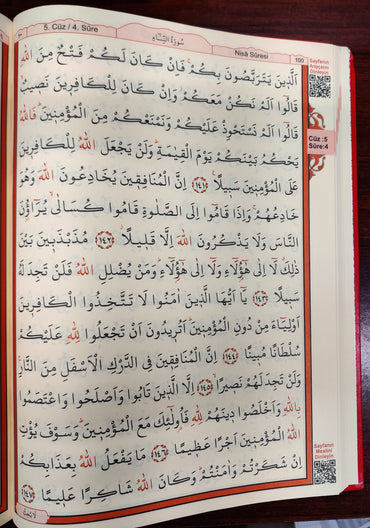 5. Cüz / 4. Sûre
سُورَةُ النِّسَاءِ
Nisâ Sûresi
100
Sayfanın Arapçasını Dinleyin
اَلَّذِينَ يَتَرَبَّصُونَ بِكُمْۚ فَاِنْ كَانَ لَكُمْ فَتْحٌ مِنَ اللّٰهِ
قَالُٓوا اَلَمْ نَكُنْ مَعَكُمْۘ وَاِنْ كَانَ لِلْكَافِرِينَ نَصِيبٌۙ
قَالُٓوا اَلَمْ نَسْتَحْوِذْ عَلَيْكُمْ وَنَمْنَعْكُمْ مِنَ الْمُؤْمِنِينَۜ فَاللّٰهُ
يَحْكُمُ بَيْنَكُمْ يَوْمَ الْقِيٰمَةِۜ وَلَنْ يَجْعَلَ اللّٰهُ لِلْكَافِرِينَ
عَلَى الْمُؤْمِنِينَ سَبِيلًا۟ ﴿١٤١﴾ اِنَّ الْمُنَافِقِينَ يُخَادِعُونَ اللّٰهَ وَهُوَ
خَادِعُهُمْۚ وَاِذَا قَامُٓوا اِلَى الصَّلٰوةِ قَامُوا كُسَالٰىۙ يُرَٓاؤُ۫نَ
النَّاسَ وَلَا يَذْكُرُونَ اللّٰهَ اِلَّا قَلِيلًاۘ ﴿١٤٢﴾ مُذَبْذَبِينَ بَيْنَ
ذٰلِكَۗ لَٓا اِلٰى هٰٓؤُ۬لَٓاءِ وَلَٓا اِلٰى هٰٓؤُ۬لَٓاءِۜ وَمَنْ يُضْلِلِ اللّٰهُ فَلَنْ تَجِدَ لَهُ
سَبِيلًا ﴿١٤٣﴾ يَٓا اَيُّهَا الَّذِينَ اٰمَنُوا لَا تَتَّخِذُوا الْكَافِرِينَ
اَوْلِيَٓاءَ مِنْ دُونِ الْمُؤْمِنِينَۜ اَتُرِيدُونَ اَنْ تَجْعَلُوا لِلّٰهِ عَلَيْكُمْ
سُلْطَانًا مُبِينًا ﴿١٤٤﴾ اِنَّ الْمُنَافِقِينَ فِي الدَّرْكِ الْاَسْفَلِ مِنَ النَّارِۚ
وَلَنْ تَجِدَ لَهُمْ نَصِيرًاۙ ﴿١٤٥﴾ اِلَّا الَّذِينَ تَابُوا وَاَصْلَحُوا وَاعْتَصَمُوا
بِاللّٰهِ وَاَخْلَصُوا دِينَهُمْ لِلّٰهِ فَاُو۬لٰٓئِكَ مَعَ الْمُؤْمِنِينَۜ وَسَوْفَ يُؤْتِ
اللّٰهُ الْمُؤْمِنِينَ اَجْرًا عَظِيمًا ﴿١٤٦﴾ مَا يَفْعَلُ اللّٰهُ بِعَذَابِكُمْ
اِنْ شَكَرْتُمْ وَاٰمَنْتُمْۜ وَكَانَ اللّٰهُ شَاكِرًا عَلِيمًا ﴿١٤٧﴾
Cüz :5
Sûre:4
Sayfanın Mealini Dinleyin